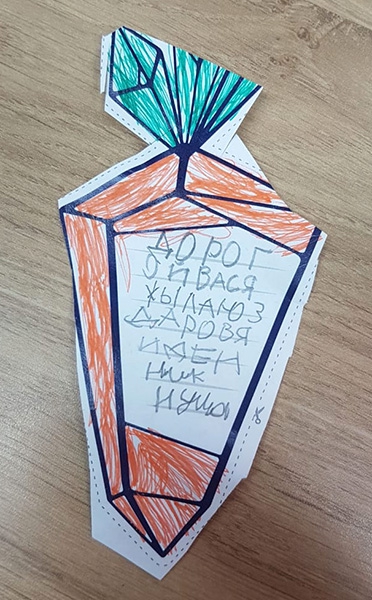 ДОРОГ
ОЙВАСЯ
ЖЫЛАЮЗ
ДАРОВЯ
ИМЕН
НИК
НУША